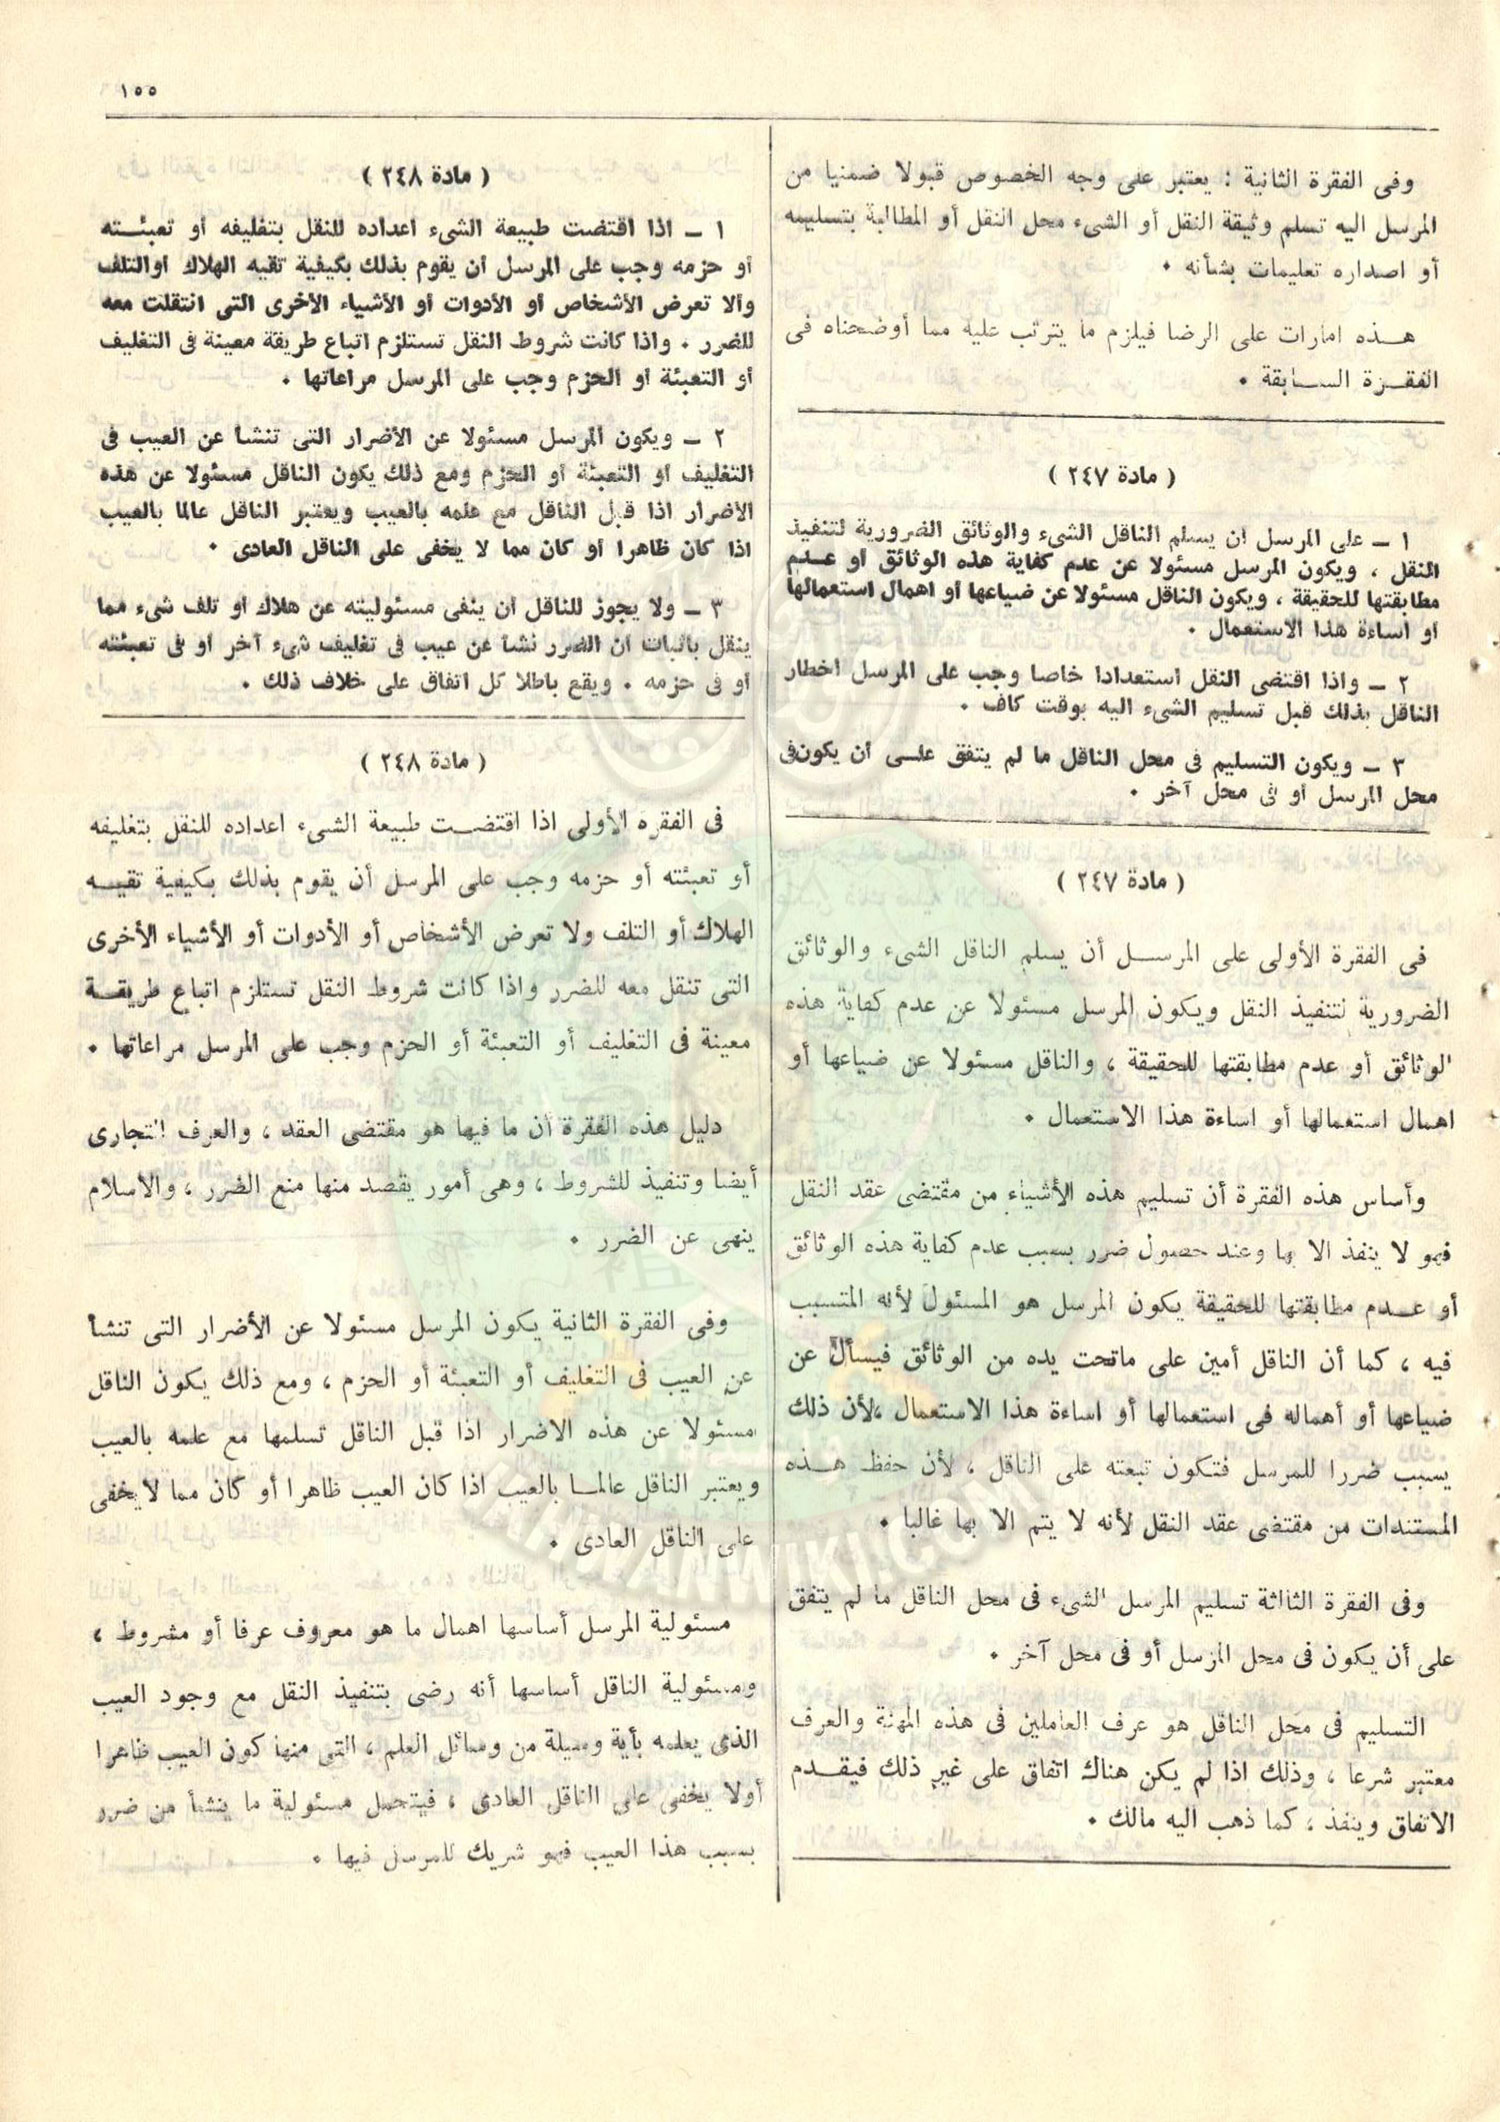 ١٥٥
وفى الفقرة الثانية : يعتبر على وجه الخصوص قبولا ضمنيا من
المرسل اليه تسلم وثيقة النقل أو الشىء محل النقل أو المطالبة بتسليمه
أو اصداره تعليمات بشأنه .
هـــذه امارات على الرضا فيلزم ما يترتب عليه مما أوضحناه فى
الفقـرة الســـابقة .
( مادة ٢٤٧ )
١ – على المرسل أن يسلم الناقل الشىء والوثائق الضرورية لتنفيذ
النقل ، ويكون المرسل مسئولا عن عدم كفاية هذه الوثائق أو عـدم
مطابقتها للحقيقة ، ويكون الناقل مسئولا عن ضياعها أو اهمال استعمالها
أو اساءة هذا الاستعمال .
٢ – واذا اقتضى النقل استعدادا خاصا وجب على المرسل اخطار
الناقل بذلك قبل تسليم الشىء اليه بوقت كاف .
٣ – ويكون التسليم فى محل الناقل ما لم يتفق علـى أن يكون فى
محل المرسل أو فى محل آخر .
( مادة ٢٤٧ )
فى الفقرة الأولى على المرســل أن يسلم الناقل الشىء والوثائق
الضرورية لتنفيذ النقل ويكون المرسل مسئولا عن عدم كفاية هذه
الوثائق أو عدم مطابقتها للحقيقة ، والناقل مسئولا عن ضياعها أو
اهمال استعمالها أو اساءة هذا الاستعمال .
وأساس هذه الفقرة أن تسليم هذه الأشياء من مقتضى عقد النقل
فهو لا ينفذ الا بها وعند حصول ضرر بسبب عدم كفاية هذه الوثائق
أو عـدم مطابقتها للحقيقة يكون المرسل هو المسئول لأنه المتسبب
فيه ، كما أن الناقل أمين على ماتحت يده من الوثائق فيسأل عن
ضياعها أو أهماله فى استعمالها أو اساءة هذا الاستعمال ،لأن ذلك
يسبب ضررا للمرسل فتكون تبعته على الناقل ، لأن حفظ هــذه
المستندات من مقتضى عقد النقل لأنه لا يتم الا بها غالبا .
وفى الفقرة الثالثة تسليم المرسل الشىء فى محل الناقل ما لم يتفق
على أن يكون فى محل المرسل أو فى محل آخر .
التسليم فى محل الناقل هو عرف العاملين فى هذه المهنة والعرف
معتبر شرعا ، وذلك اذا لم يكن هناك اتفاق على غير ذلك فيقـدم
الاتفاق وينفذ ، كما ذهب اليه مالك .
( مادة ٢٤٨ )
١ – اذا اقتضت طبيعة الشىء اعداده للنقل بتغليفه أو تعبئــته
أو حزمه وجب على المرسل أن يقوم بذلك بكيفية تقيه الهلاك أوالتلف
وألا تعرض الأشخاص أو الأدوات أو الأشياء الأخرى التى انتقلت معه
للضرر . واذا كانت شروط النقل تستلزم اتباع طريقة معينة فى التغليف
أو التعبئة أو الحزم وجب على المرسل مراعاتها .
٢ – ويكون المرسل مسئولا عن الأضرار التى تنشأ عن العيب فى
التغليف أو التعبئة أو الحزم ومع ذلك يكون الناقل مسئولا عن هذه
الأضرار اذا قبل الناقل مع علمه بالعيب ويعتبر الناقل عالما بالعيب
اذا كان ظاهرا أو كان مما لا يخفى على الناقل العادى .
٣ – ولا يجوز للناقل أن ينفى مسئوليته عن هلاك أو تلف شىء مما
ينقل باثبات أن الضرر نشأ عن عيب فى تغليف شىء آخر أو فى تعبئته
أو فى حزمه . ويقع باطلا كل اتفاق على خلاف ذلك .
( مادة ٢٤٨ )
فى الفقره الأولى اذا اقتضــت طبيعة الشىء اعداده للنقل بتغليفه
أو تعبئته أو حزمه وجب على المرسل أن يقوم بذلك بكيفية تقيـه
الهلاك أو التلف ولا تعرض الأشخاص أو الأدوات أو الأشياء الأخرى
التى تنقل معه للضرر واذا كانت شروط النقل تستلزم اتباع طريقـة
معينة فى التغليف أو التعبئة أو الحزم وجب على المرسل مراعاتها .
دليل هذه الفقرة أن ما فيها هو مقتضى العقد ، والعرف التجارى
أيضا وتنفيذ للشروط ، وهى أمور يقصد منها منع الضرر ، والاسلام
ينهى عن الضرر .
وفى الفقرة الثانية يكون المرسل مسئولا عن الأضرار التى تنشأ
عن العيب فى التغليف أو التعبئة أو الحزم ، ومع ذلك يكون الناقل
مسئولا عن هذه الاضرار اذا قبل الناقل تسلمها مع علمه بالعيب
ويعتبر الناقل عالمـا بالعيب اذا كان العيب ظاهرا أو كان مما لا يخفى
على الناقل العادى .
مسئولية المرسل أساسها اهمال ما هو معروف عرفا أو مشروط ،
ومسئولية الناقل أساسها أنه رضى بتنفيذ النقل مع وجود العيب
الذى يعلمه بأية وسيلة من وسائل العلم ، التى منها كون العيب ظاهرا
أولا يخفى على الناقل العادى ، فيتحمل مسئولية ما ينشأ من ضرر
بسبب هذا العيب فهو شريك للمرسل فيها .